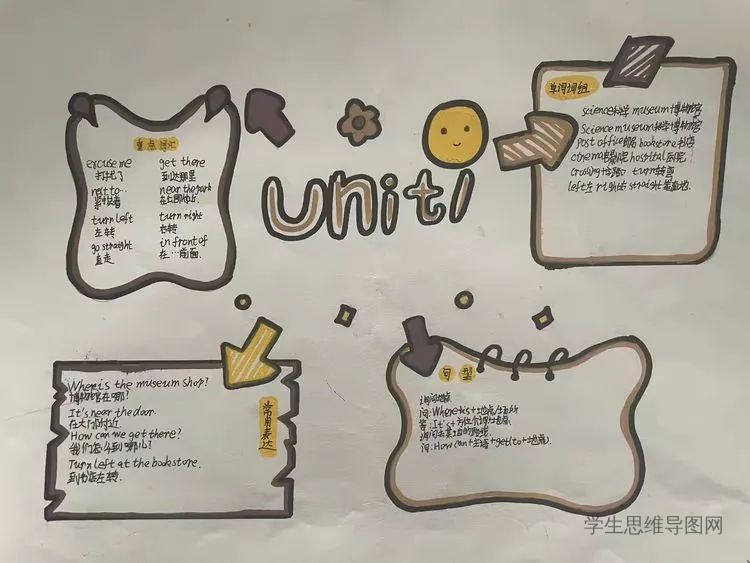 unit1
重点词汇
excuse me
打扰了
next to...
紧挨着
turn left
左转
go straight
直走
get there
到达那里
near the park
在公园附近
turn right
右转
in front of
在…前面
单词词组
science科学 museum博物馆
Science museum科学博物馆
post office邮局 bookstore书店
cinema电影院 hospital医院
crossing十字路口 turn转弯
left左 right右 straight笔直地
Where is the museum shop?
博物馆在哪?
It's near the door.
在大门附近.
How can we get there?
我们怎么到哪儿?
Turn left at the bookstore.
到书店左转.
常用表达
句型
询问地点
问: Where is+地点
答: It's+
问: How can+主语+get(to+地点).
学生思维导图网